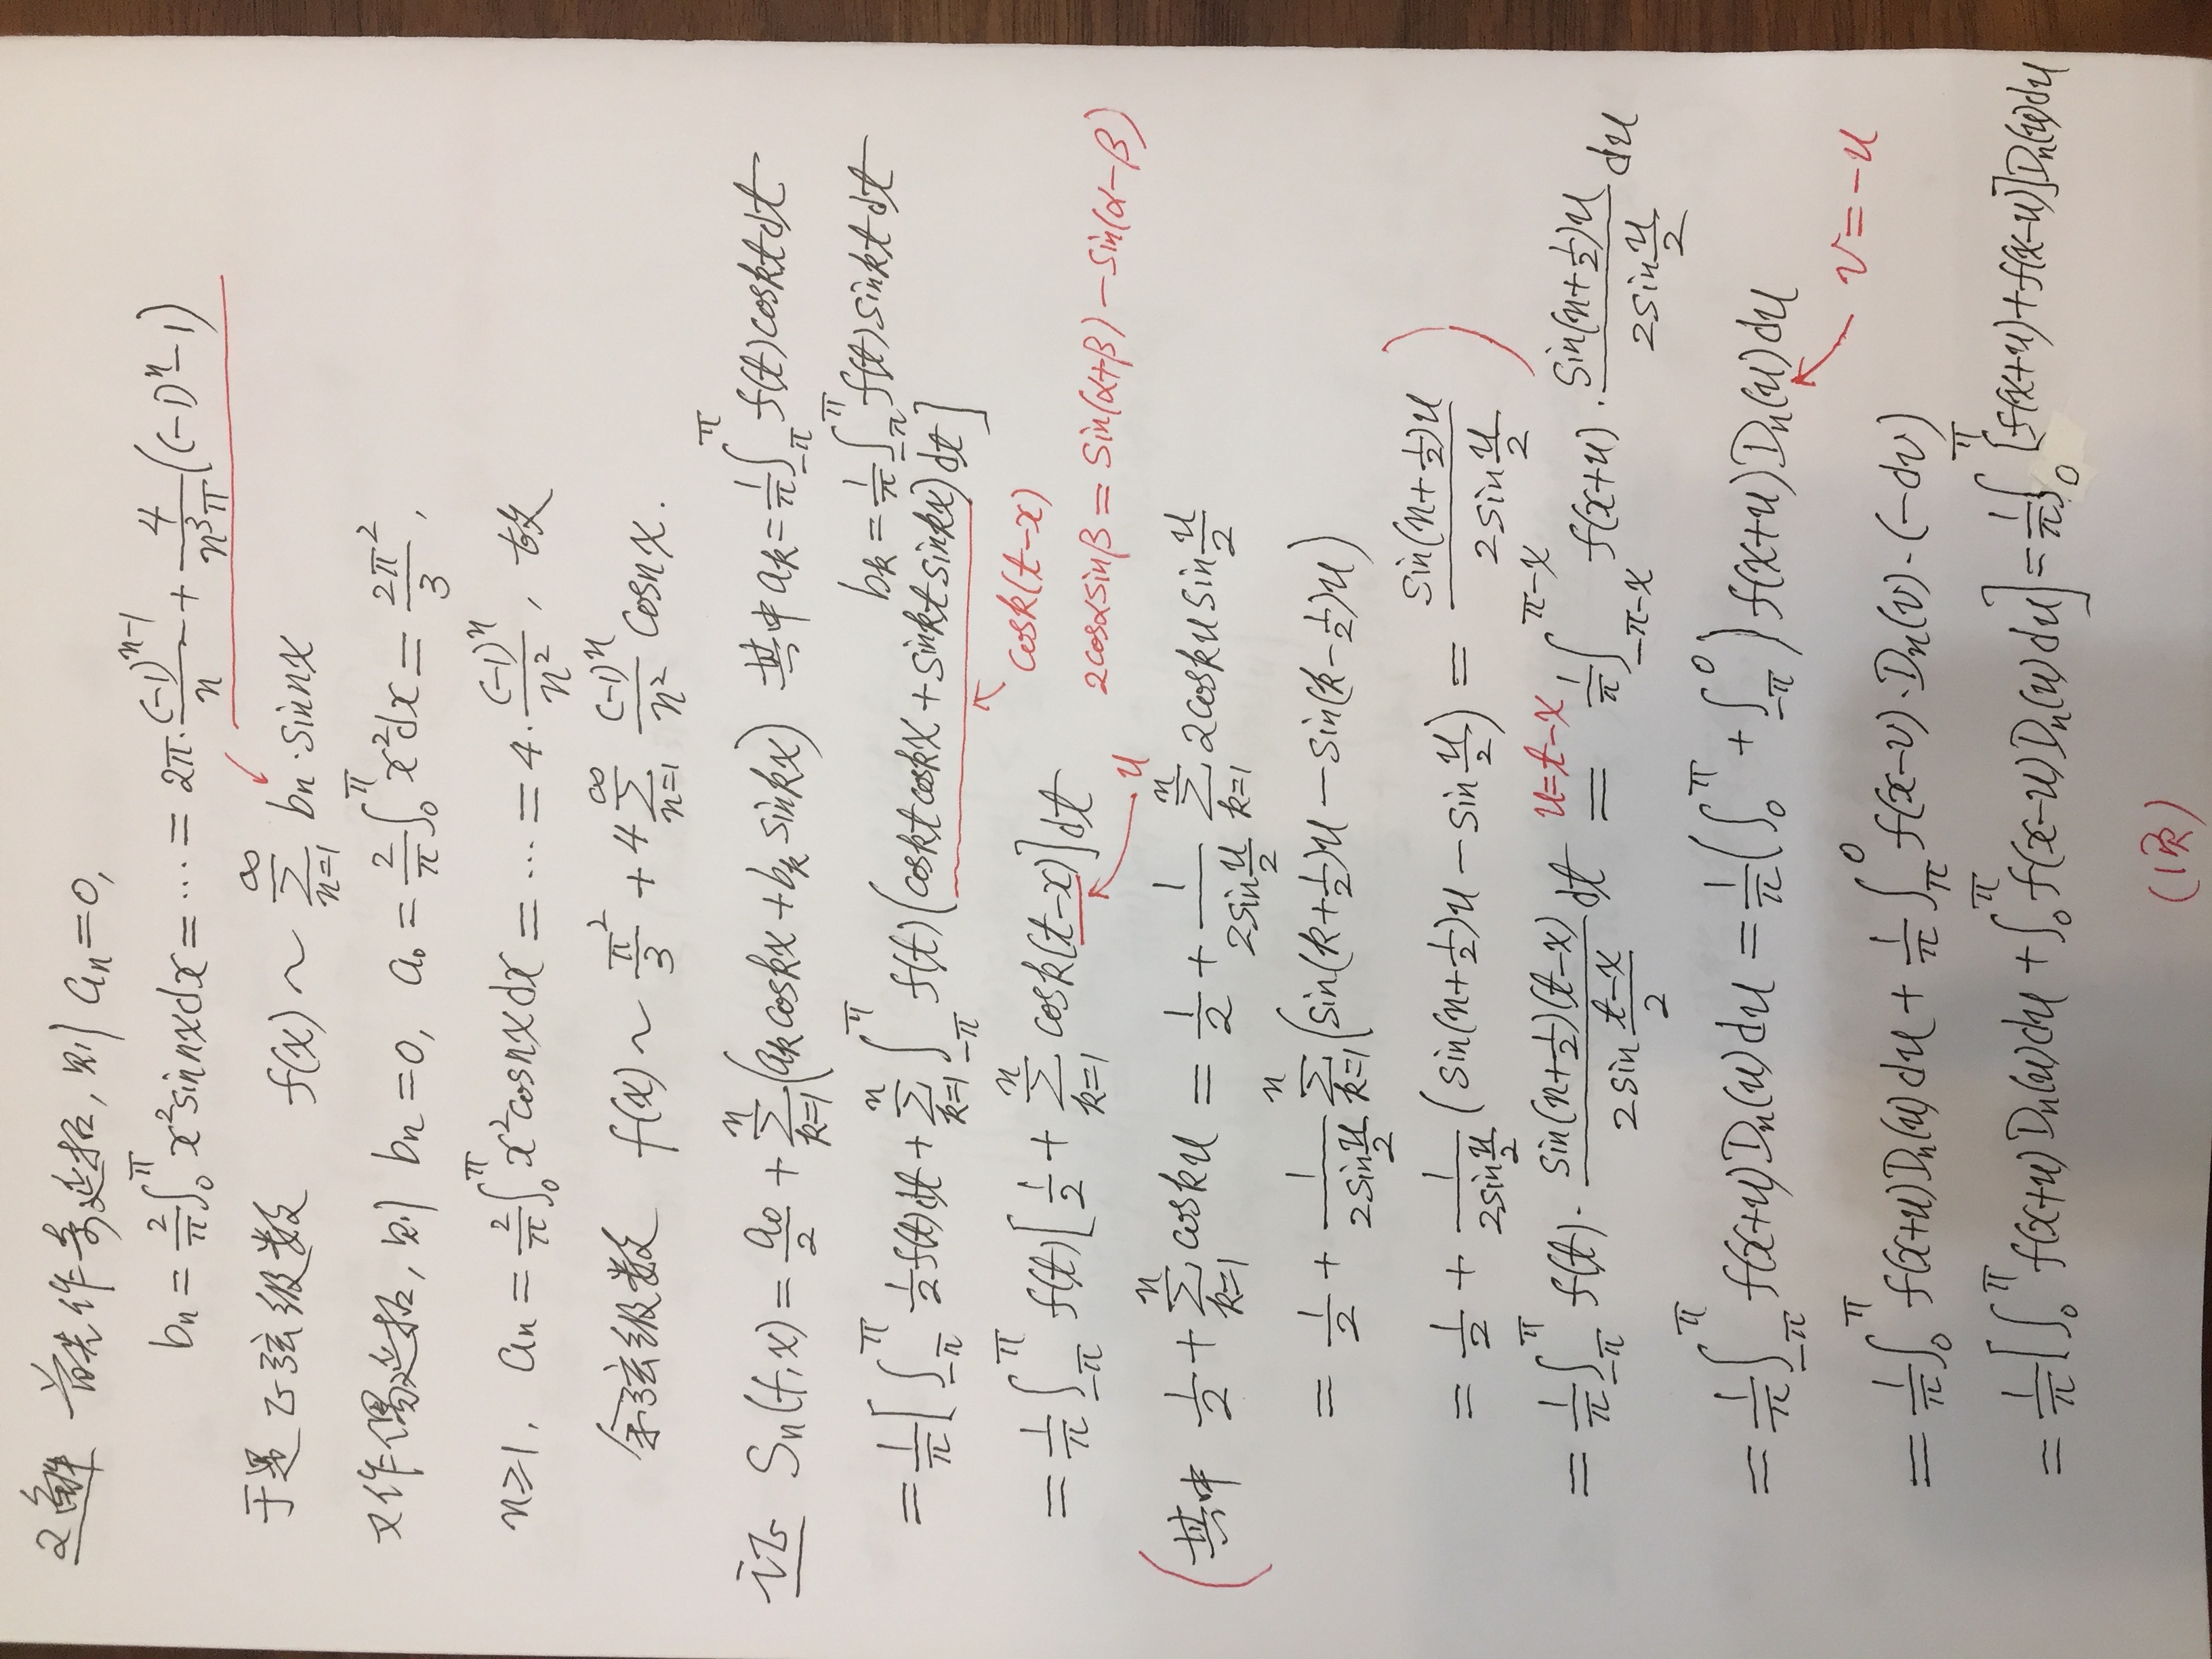 2解 首先作奇延拓,则 aₙ=0,
bₙ = 2/π ∫₀^π x²sin nx dx = … = 2π·(-1)ⁿ⁻¹/n + 4/(n³π) ((-1)ⁿ-1)
于是正弦级数 f(x) ~ ∑_{n=1}^∞ bₙ·sin nx
又作偶延拓,则 bₙ=0, a₀ = 2/π ∫₀^π x²dx = 2π²/3,
n≥1, aₙ = 2/π ∫₀^π x²cos nx dx = … = 4·(-1)ⁿ/n², 故
余弦级数 f(x) ~ π²/3 + 4∑_{n=1}^∞ (-1)ⁿ/n² cos nx.
证 Sₙ(f,x) = a₀/2 + ∑_{k=1}^n (aₖcos kx + bₖ sin kx) 其中 aₖ = 1/π ∫_{-π}^π f(t) cos kt dt
bₖ = 1/π ∫_{-π}^π f(t) sin kt dt
= 1/π [∫_{-π}^π 1/2 f(t)dt + ∑_{k=1}^n ∫_{-π}^π f(t)(cos kt cos kx + sin kt sin kx)dt]
cos k(t-x)
= 1/π ∫_{-π}^π f(t)[1/2 + ∑_{k=1}^n cos k(t-x)]dt
2cosαsinβ = sin(α+β) - sin(α-β)
u
(其中 1/2 + ∑_{k=1}^n cos ku = 1/2 + 1/(2sin u/2) ∑_{k=1}^n 2cos ku sin u/2
= 1/2 + 1/(2sin u/2) ∑_{k=1}^n (sin(k+1/2)u - sin(k-1/2)u)
= 1/2 + 1/(2sin u/2) (sin(n+1/2)u - sin u/2) = sin(n+1/2)u / (2sin u/2) )
= 1/π ∫_{-π}^π f(t)· sin(n+1/2)(t-x) / (2sin (t-x)/2) dt u=t-x = 1/π ∫_{-π-x}^{π-x} f(x+u)· sin(n+1/2)u / (2sin u/2) du
= 1/π ∫_{-π}^π f(x+u)Dₙ(u)du = 1/π (∫₀^π + ∫_{-π}^0) f(x+u)Dₙ(u)du
v=-u
= 1/π ∫₀^π f(x+u)Dₙ(u)du + 1/π ∫_π^0 f(x-v)·Dₙ(v)·(-dv)
= 1/π [∫₀^π f(x+u)Dₙ(u)du + ∫₀^π f(x-u)Dₙ(u)du] = 1/π ∫₀^π [f(x+u)+f(x-u)]Dₙ(u)du
(1页)